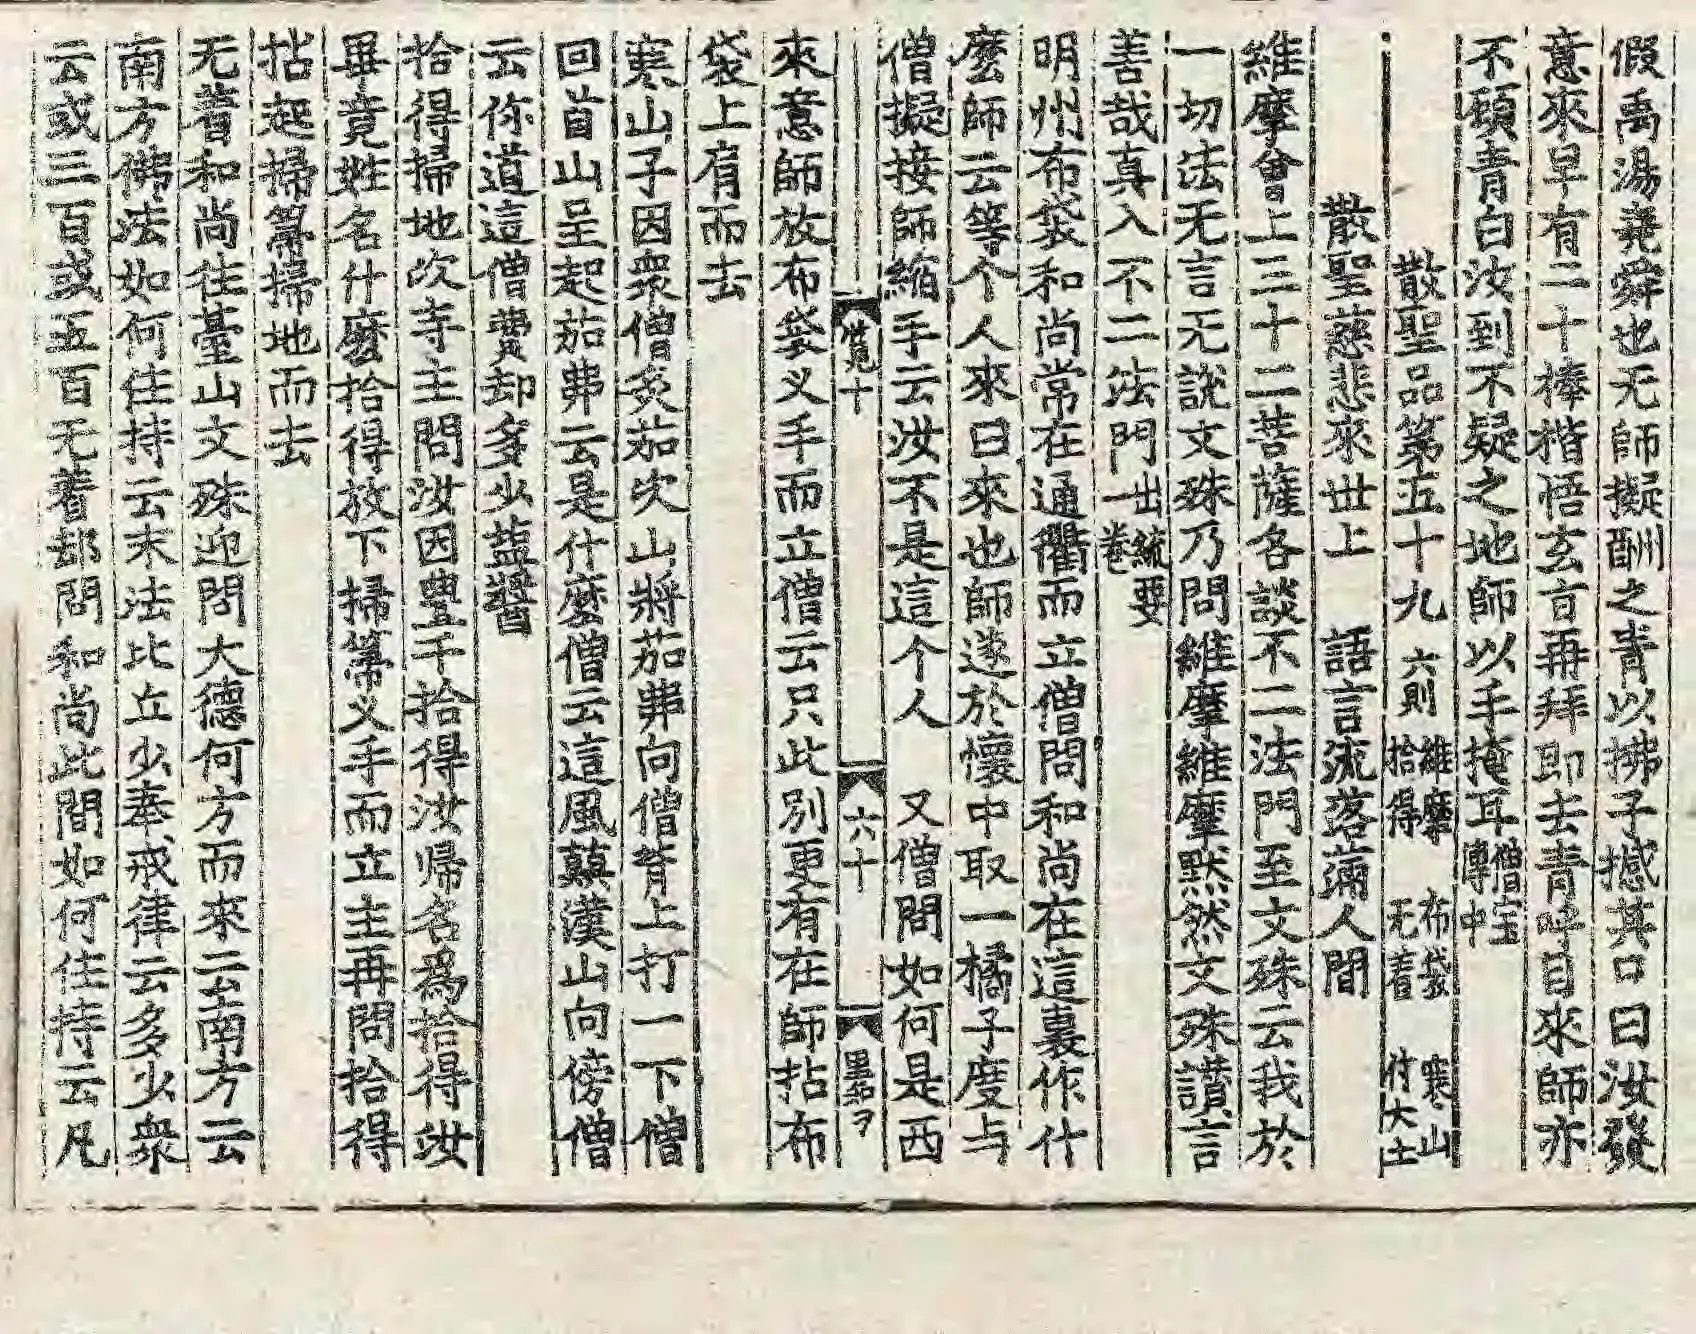 假禹湯堯舜也无師擬酬之青以拂子撼其口曰汝發
意來早有二十棒楷悟玄言再拜即去青呼目來師亦
不頋青曰汝到不疑之地師以手掩耳僧宝傳中
散聖品第五十九 六則 維摩 布袋 寒山 拾得 无着 付大士
散聖慈悲來丗上 語言流落滿人間
維摩會上三十二菩薩各談不二法門至文殊云我於
一切法无言无說文殊乃問維摩維摩默然文殊讃言
善哉真入不二法門出統要卷
明州布袋和尚常在通衢而立僧問和尚在這裏作什
麼師云等个人來曰來也師遂於懷中取一橘子度与
僧擬接師縮手云汝不是這个人 又僧問如何是西
覧十 六十 墨點ヲ
來意師放布袋义手而立僧云只此別更有在師拈布
袋上肩而去
寒山子因衆僧炙茄次山將茄弗向僧背上打一下僧
回首山呈起茄弗云是什麼僧云這風蘏漢山向傍僧
云你道這僧費却多少塩醬
拾得掃地次寺主問汝因豊干拾得汝帰名為拾得汝
畢竟姓名什麼拾得放下掃箒义手而立主再問拾得
拈起掃箒掃地而去
无着和尚往臺山文殊迎問大德何方而來云南方云
南方佛法如何住持云末法比丘少奉戒律云多少衆
云或三百或五百无着却問和尚此間如何住持云凡